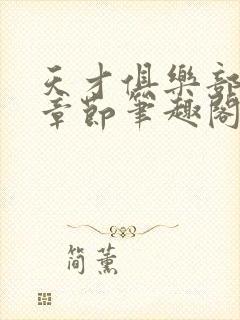 天才俱樂部
章節筆趣閣
簡薰